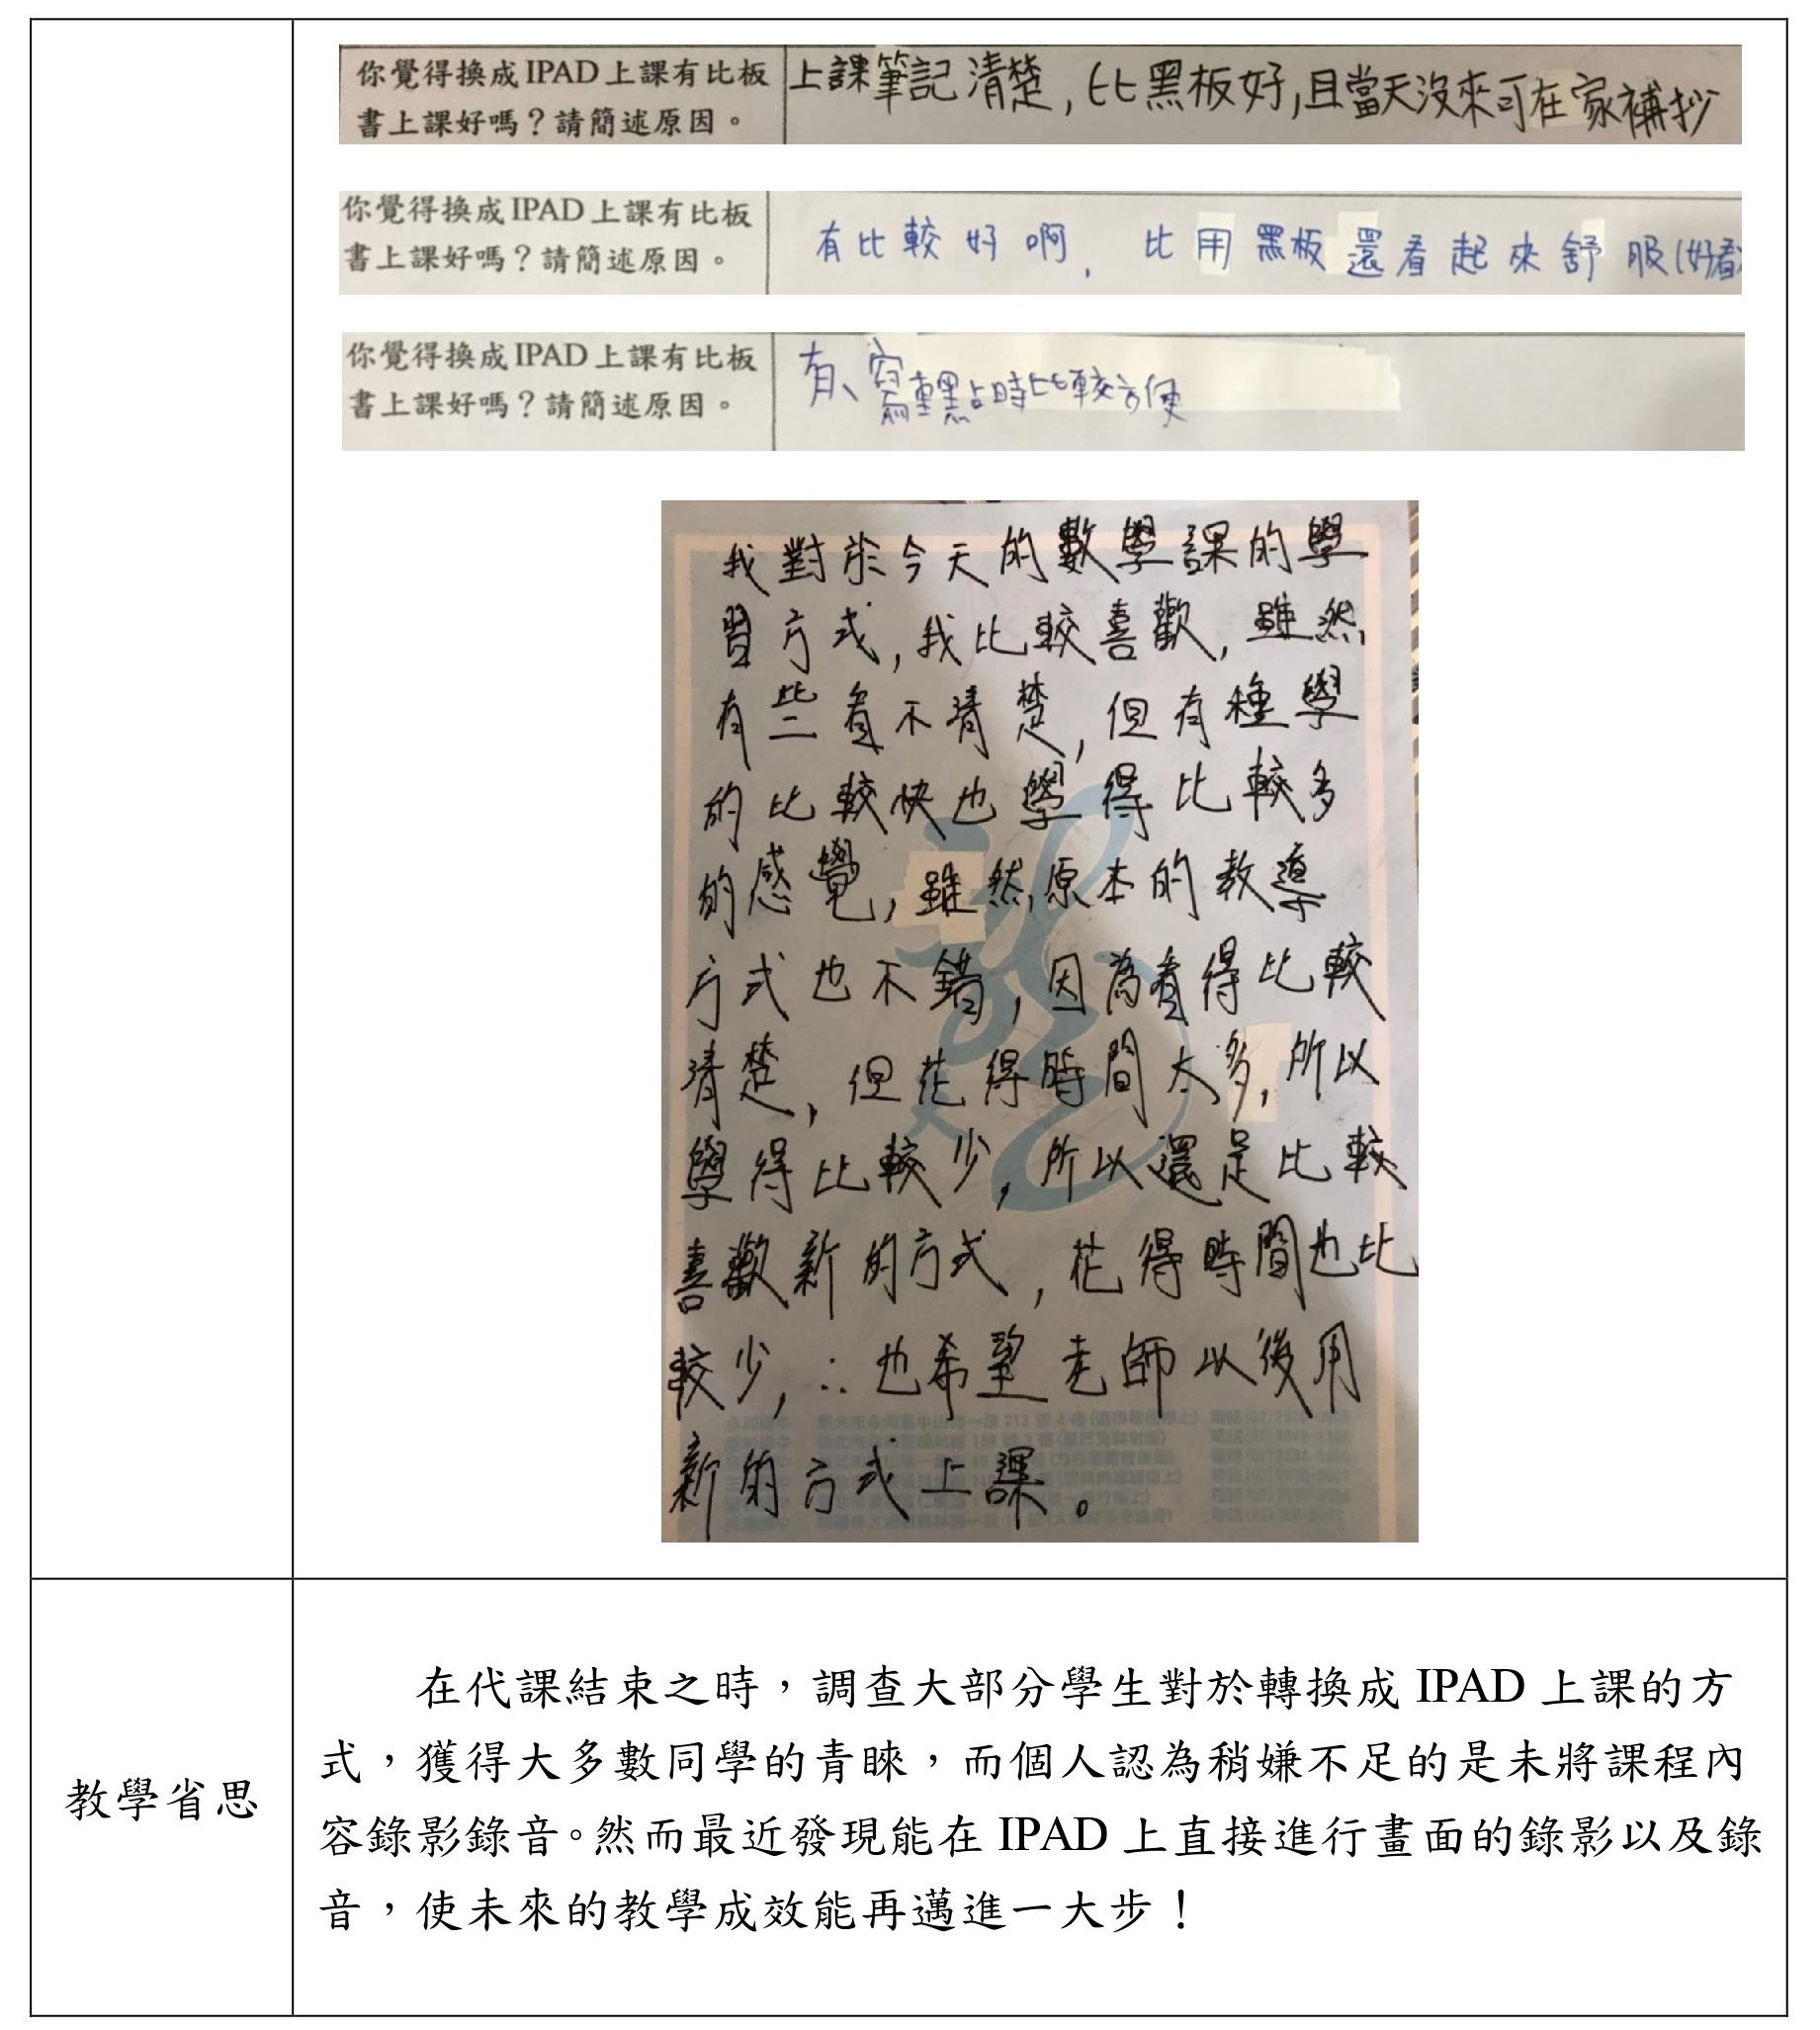 你覺得換成IPAD上課有比板
書上課好嗎？請簡述原因。
上課筆記清楚,比黑板好,且當天沒來可在家補抄
你覺得換成IPAD上課有比板
書上課好嗎？請簡述原因。
有比較好啊, 比用黑板還看起來舒服(好看
你覺得換成IPAD上課有比板
書上課好嗎？請簡述原因。
有、寫重點時比較方便
我對於今天的數學課的學
習方式,我比較喜歡,雖然
有些看不清楚,但有種學
的比較快也學得比較多
的感覺,雖然原本的教導
方式也不錯,因為看得比較
清楚,但花得時間太多,所以
學得比較少,所以還是比較
喜歡新的方式,花得時間也比
較少,∴也希望老師以後用
新的方式上課。
教學省思
在代課結束之時，調查大部分學生對於轉換成 IPAD 上課的方
式，獲得大多數同學的青睞，而個人認為稍嫌不足的是未將課程內
容錄影錄音。然而最近發現能在 IPAD 上直接進行畫面的錄影以及錄
音，使未來的教學成效能再邁進一大步！